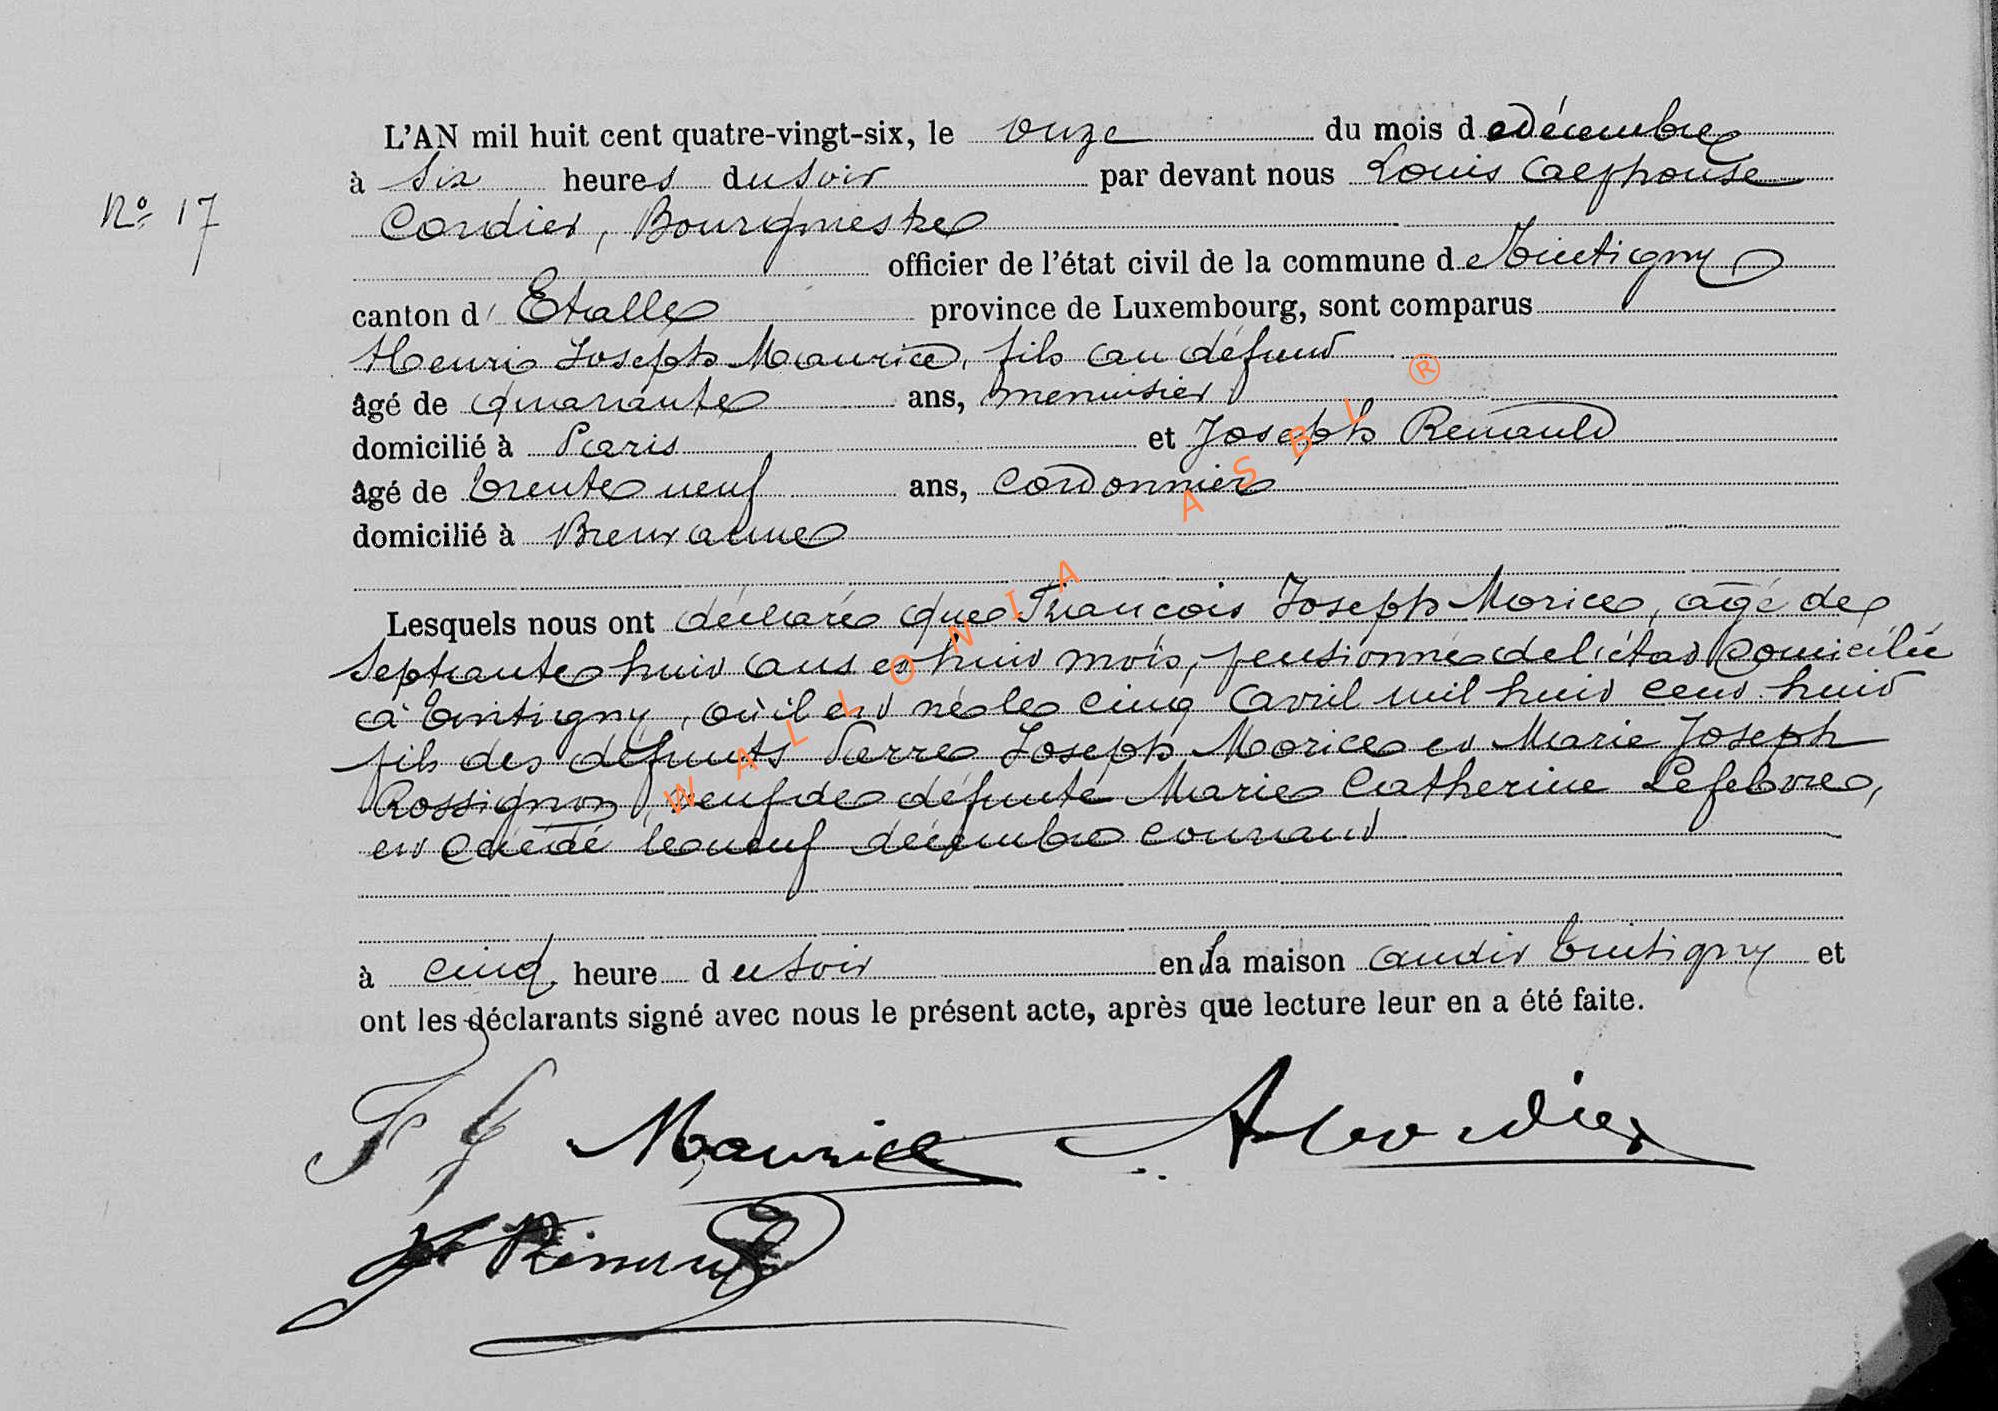 L'AN mil huit cent quatre-vingt-six, le onze du mois de décembre
à six heures du soir par devant nous Louis Alphonse
N° 17
Cordier, Bourgmestre
officier de l'état civil de la commune de Tintigny
canton d' Etalle province de Luxembourg, sont comparus
Henri Joseph Maurice, fils au défunt
âgé de quarante ans, menuisier
domicilié à Paris et Joseph Renauld
âgé de trente neuf ans, cordonnier
domicilié à Breuvanne
Lesquels nous ont déclaré que François Joseph Morice, agé de
septante huit ans et huit mois, pensionné de l'état domicilié
à Tintigny, où il est né le cinq avril mil huit cent huit
fils des défunts Pierre Joseph Morice et Marie Joseph
Rossignon, veuf de défunte Marie Catherine Lefebvre,
est décédé le neuf décembre courant
à cinq heure du soir en la maison audit Tintigny et
ont les déclarants signé avec nous le présent acte, après que lecture leur en a été faite.
Maurice A Cordier
J Renauld
WALLONIA ASBL ®